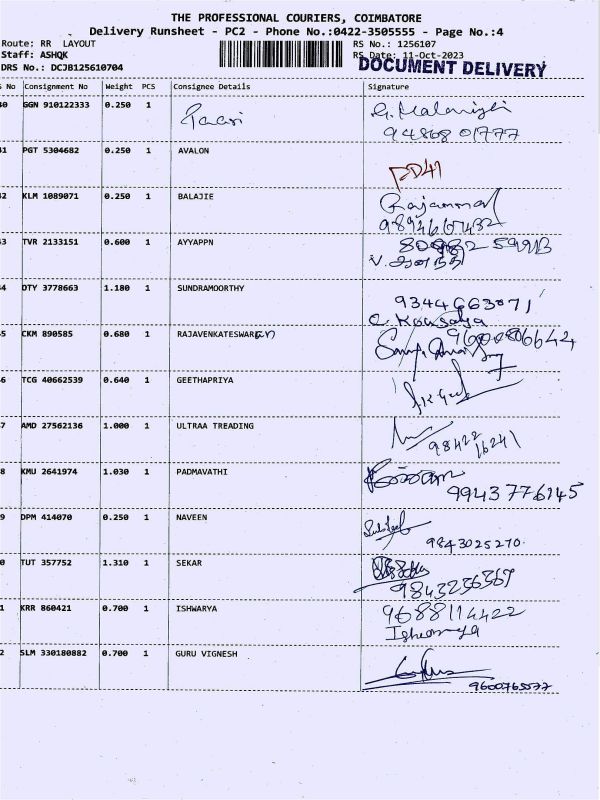 THE PROFESSIONAL COURIERS, COIMBATORE
Delivery Runsheet - PC2 - Phone No.:0422-3505555 - Page No.:4
Route: RR LAYOUT RS No.: 1256107
Staff: ASHQK RS Date: 11-Oct-2023
DRS No.: DCJB125610704 DOCUMENT DELIVERY
No Consignment No Weight PCS Consignee Details Signature
GGN 910122333 0.250 1
94868 01777
PGT 5304682 0.250 1 AVALON
KLM 1089071 0.250 1 BALAJIE Rajammal
TVR 2133151 0.600 1 AYYAPPN
DTY 3778663 1.180 1 SUNDRAMOORTHY
9344663071
C. Kousalya
CKM 890585 0.680 1 RAJAVENKATESWARAN
TCG 40662539 0.640 1 GEETHAPRIYA
AMD 27562136 1.000 1 ULTRAA TREADING
98422
16241
KMU 2641974 1.030 1 PADMAVATHI
9943776145
DPM 414070 0.250 1 NAVEEN
9843025270
TUT 357752 1.310 1 SEKAR
9843236369
KRR 860421 0.700 1 ISHWARYA 9688114422
Ishwarya
SLM 330180882 0.700 1 GURU VIGNESH
9600765577